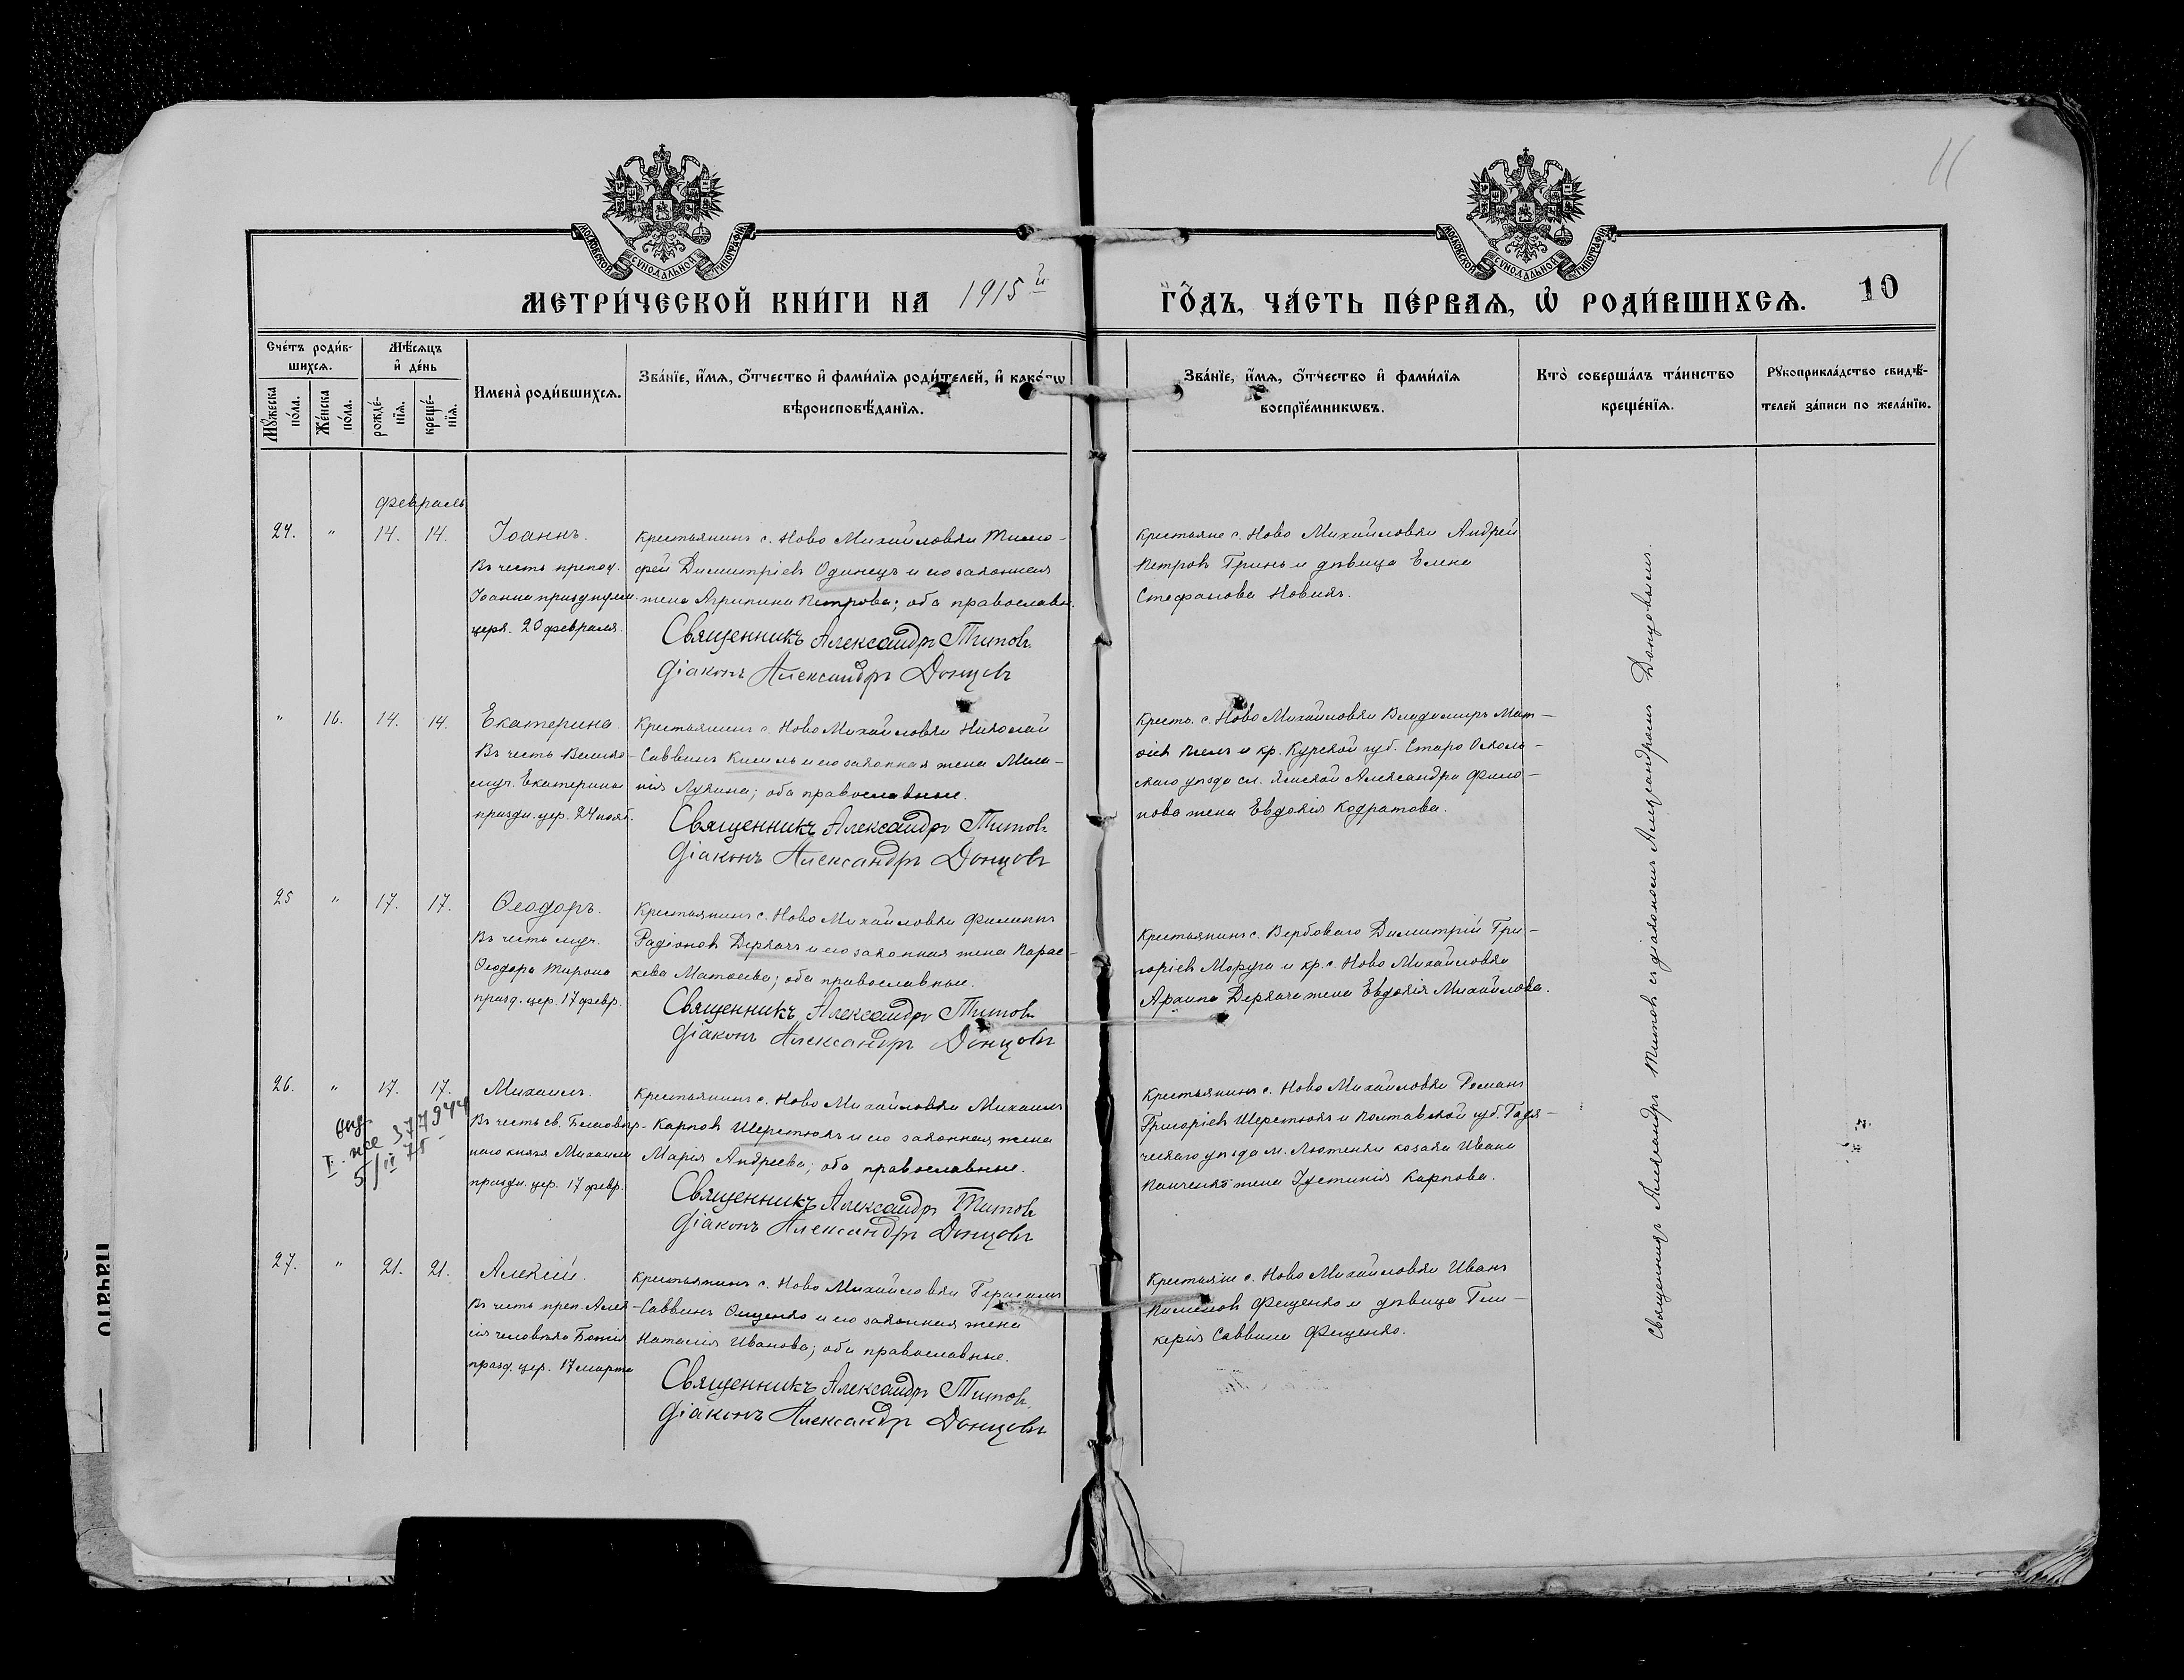 МОСКОВСКОЙ СѴНОДАЛЬНОЙ ТИПОГРАФІИ
МОСКОВСКОЙ СѴНОДАЛЬНОЙ ТИПОГРАФІИ
МЕТРИ́ЧЕСКОЙ КНИ́ГИ НА 1915й
ГО́ДЪ, ЧА́СТЬ ПЕ́РВАѦ, Ѡ҆ РОДИ́ВШИХСѦ.
10
11
Сче́тъ роди́в-
шихсѧ.
Мꙋ́жеска
по́ла.
Же́нска
по́ла.
Мѣ́сѧцъ
и҆ де́нь
рожде́-
нїѧ.
креще́-
нїѧ.
Имена̀ роди́вшихсѧ.
Зва́нїе, и҆́мѧ, ѻ҆́тчество и҆ фами́лїѧ роди́телей, и҆ како́гѡ
вѣроисповѣ́данїѧ.
Зва́нїе, и҆́мѧ, ѻ҆́тчество и҆ фами́лїѧ
воспрїе́мникѡвъ.
Кто̀ соверша́лъ та́инство
креще́нїѧ.
Рꙋкоприкла́дство свидѣ́-
телей за́писи по жела́нїю.
Февраль
24. " 14. 14. Іоаннъ.
Въ честь препод.
Іоанна празднуем.
церк. 20 февраля.
Крестьянинъ с. Ново Михайловки Тимо-
фей Димитріевъ Одинецъ и его законная
жена Агрипина Петрова; оба православн.
Священникъ Александръ Титовъ
Діаконъ Александръ Донцовъ
Крестьяне с. Ново Михайловки Андрей
Петровъ Гринь и дѣвица Елена
Стефанова Новикъ.
" 16. 14. 14. Екатерина.
Въ честь Велико-
муч. Екатерины
праздн. цер. 24 нояб.
Крестьянинъ с. Ново Михайловки Николай
Саввинъ Кисиль и его законная жена Мела-
нія Лукина; оба православные.
Священникъ Александръ Титовъ
Діаконъ Александръ Донцовъ
Кресть. с. Ново Михайловки Владимиръ Мат-
ѳіевъ и кр. Курской губ. Старо Осколь-
скаго уѣзда сл. Ямской Александра Фили-
нова жена Евдокія Кодратова.
25 " 17. 17. Ѳеодоръ.
Въ честь муч.
Ѳеодора Тирона
празд. цер. 17 февр.
Крестьянинъ с. Ново Михайловки Филиппъ
Радіоновъ Деркачъ и его законная жена Парас-
кева Матѳеева; оба православные.
Священникъ Александръ Титовъ
Діаконъ Александръ Донцовъ
Крестьянинъ с. Вербоваго Димитрій Гри-
горіевъ Моруга и кр. с. Ново Михайловки
Архипа Деркача жена Евдокія Михайлова.
26. " 17. 17. Михаилъ.
Въ честь св. Благовѣр-
наго князя Михаила
праздн. цер. 17 февр.
377944
5/II 75
Крестьянинъ с. Ново Михайловки Михаилъ
Карповъ Шерстюкъ и его законная жена
Марія Андреева; оба православные.
Священникъ Александръ Титовъ
Діаконъ Александръ Донцовъ
Крестьянинъ с. Ново Михайловки Романъ
Григоріевъ Шерстюкъ и Полтавской губ. Гадя-
ческаго уѣзда м. Лютенки козака Ивана
Панченко жена Іустинія Карпова.
27. " 21. 21. Алексій.
Въ честь преп. Алек-
сія человѣка Божія
празд. цер. 17 марта
Крестьянинъ с. Ново Михайловки Герасимъ
Саввинъ Ѳщенко и его законная жена
Наталія Иванова; оба православные.
Священникъ Александръ Титовъ
Діаконъ Александръ Донцовъ
Крестьяне с. Ново Михайловки Иванъ
Пименовъ Фещенко и дѣвица Гли-
керія Саввина Фещенко.
Священникъ Александръ Титовъ съ діакономъ Александромъ Донцовымъ.
Начато